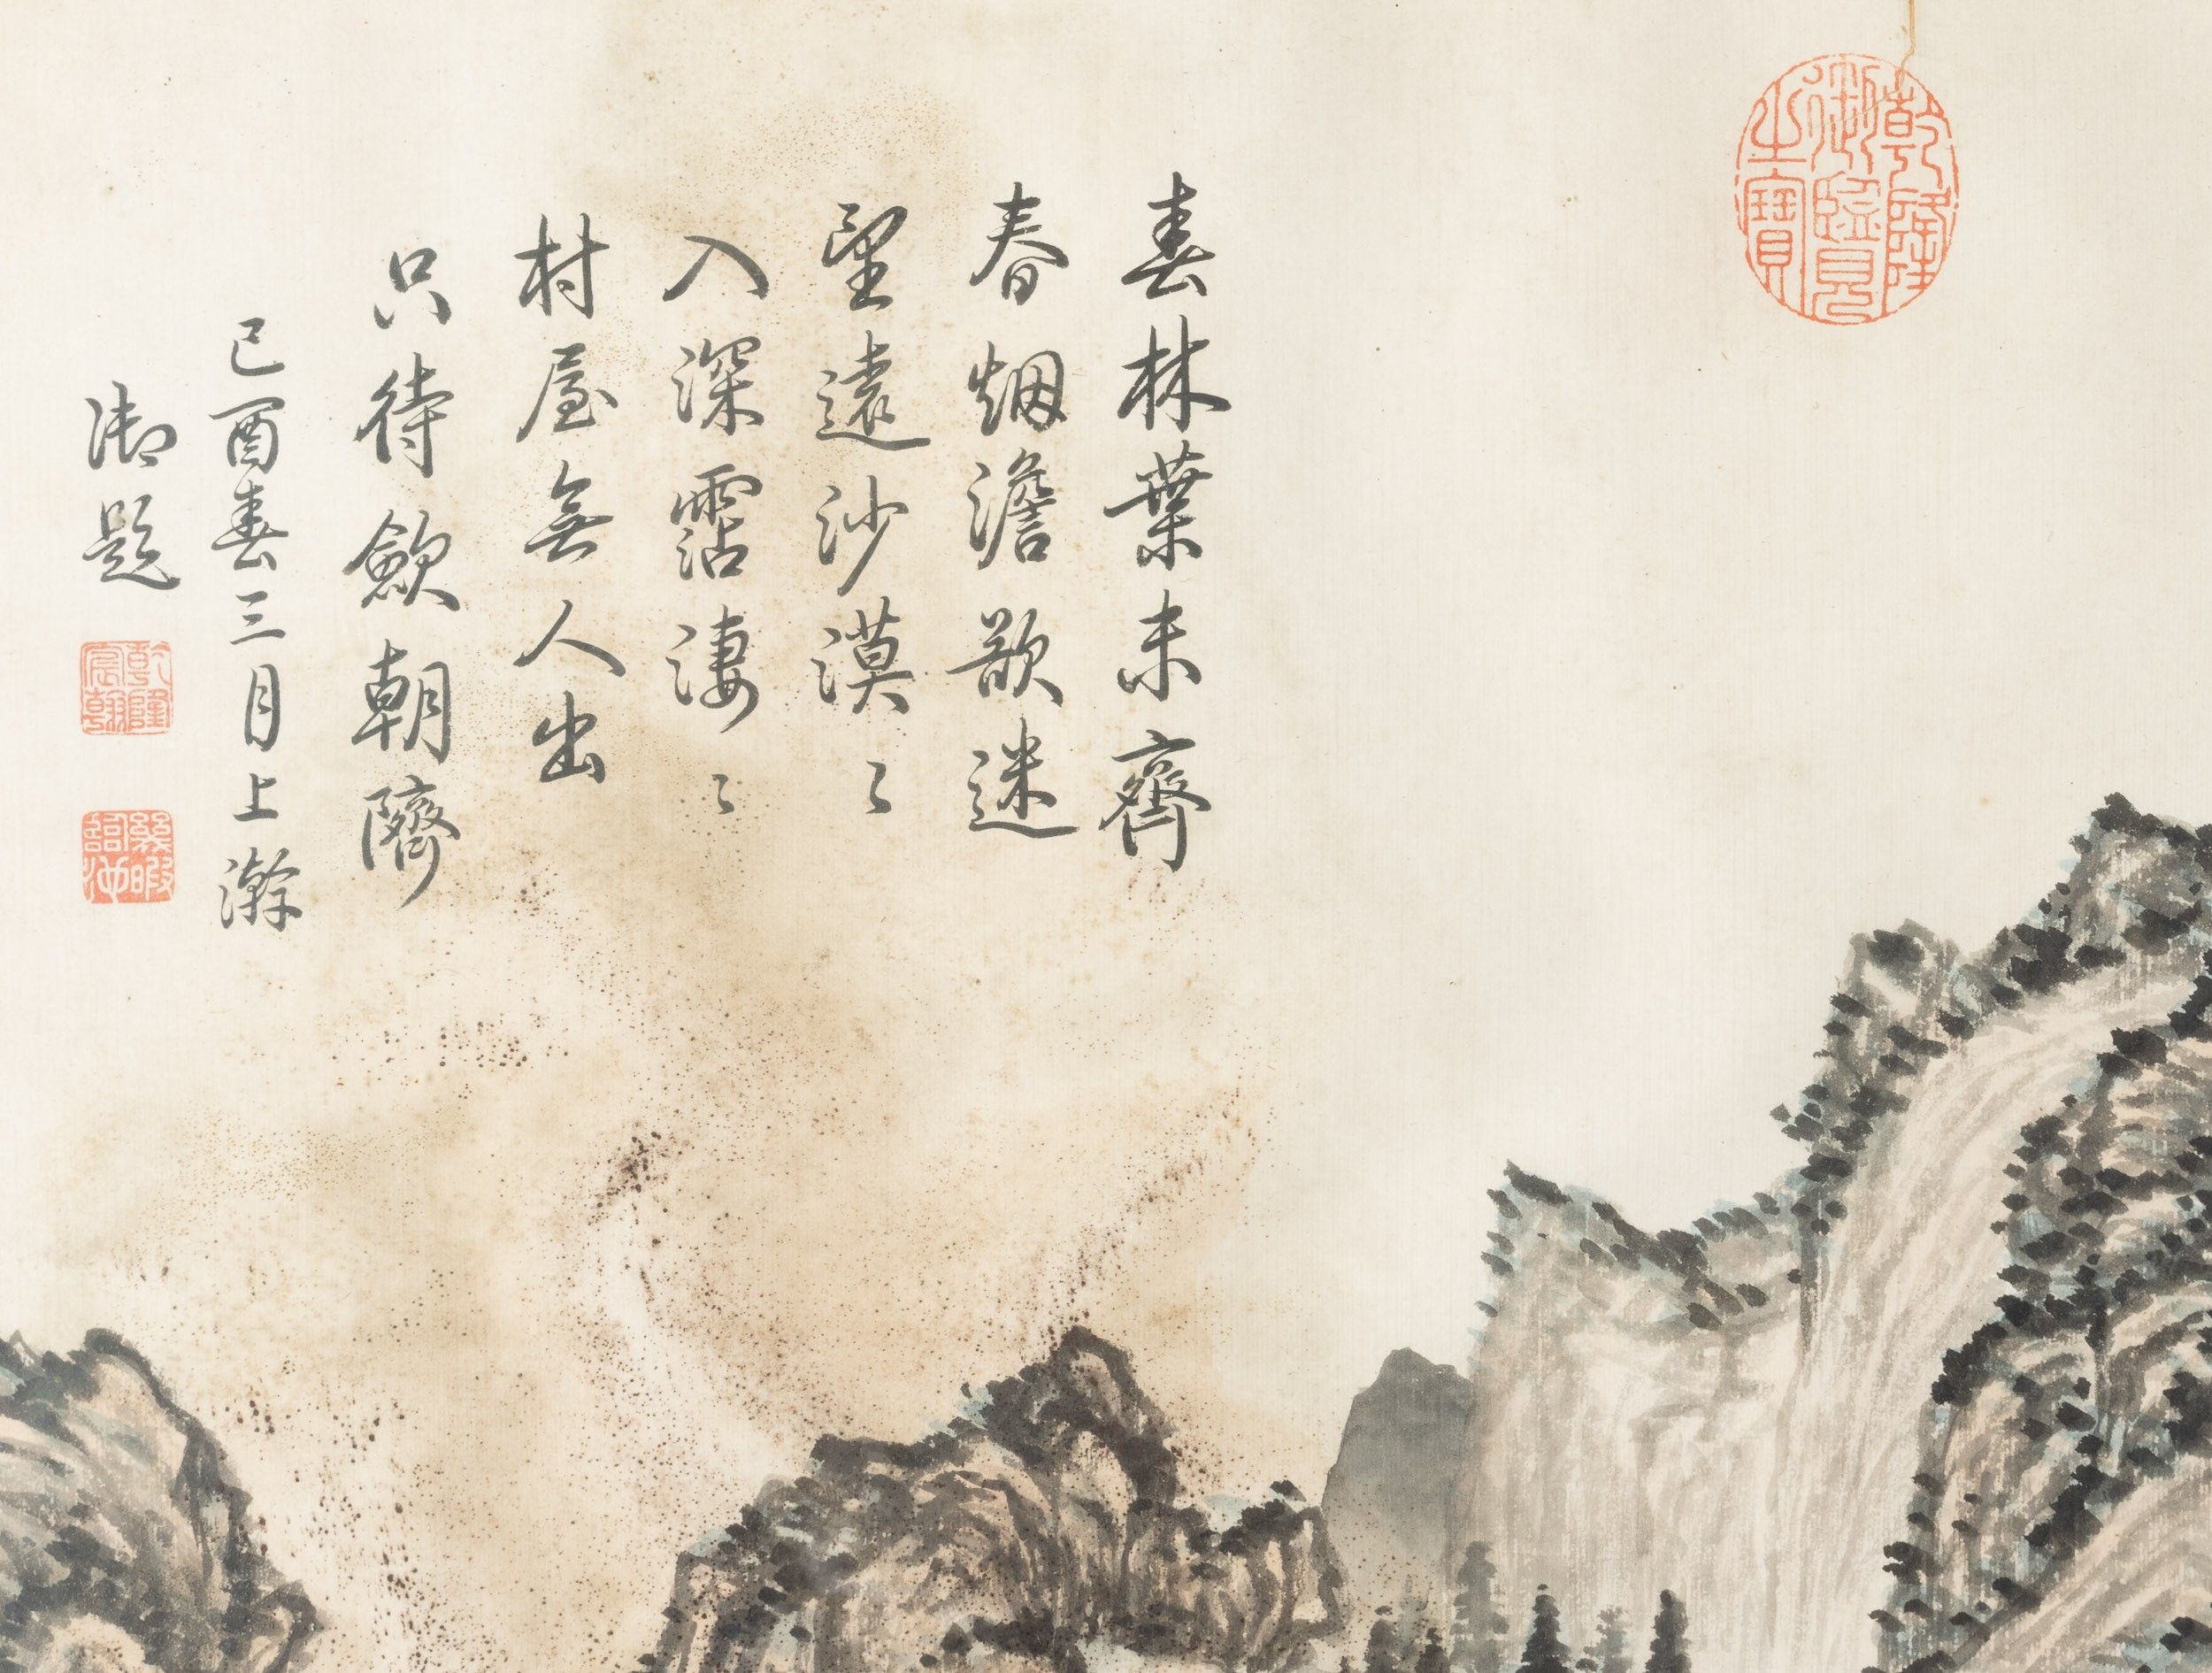 乾隆御覽之寶
春林葉未齊
春烟澹欲迷
望遠沙漠〻
入深霑淒〻
村屋無人出
只待歛朝隮
己酉春三月上澣
御題
乾隆宸翰